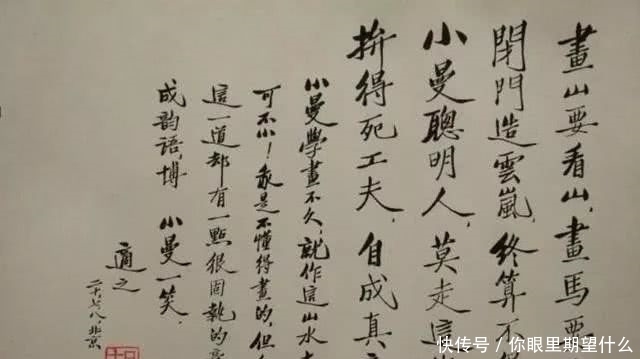 畫山要看山,畫馬要
閉門造雲嵐,終算不
小曼聰明人,莫走這
拚得死工夫,自成真
小曼學畫不久,就作這山水
可不小!我是不懂得畫的,但
這一道却有一點很固執的
成韵語,博 小曼一笑.
適之
北京
快传号/你眼里期望什么